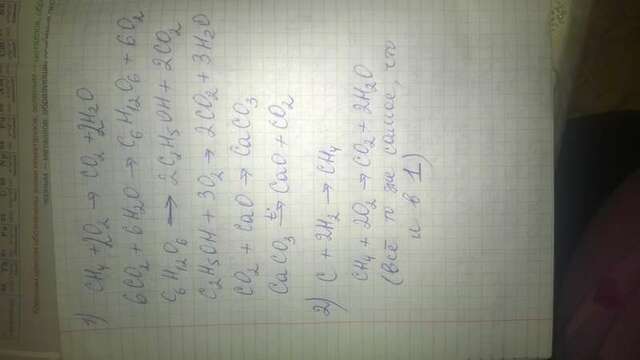 1) CH4 + 2O2 → CO2 + 2H2O
6CO2 + 6H2O → C6H12O6 + 6O2
C6H12O6 → 2C2H5OH + 2CO2
C2H5OH + 3O2 → 2CO2 + 3H2O
CO2 + CaO → CaCO3
CaCO3 t°→ CaO + CO2
2) C + 2H2 → CH4
CH4 + 2O2 → CO2 + 2H2O
(всё то же самое, что
и в 1)